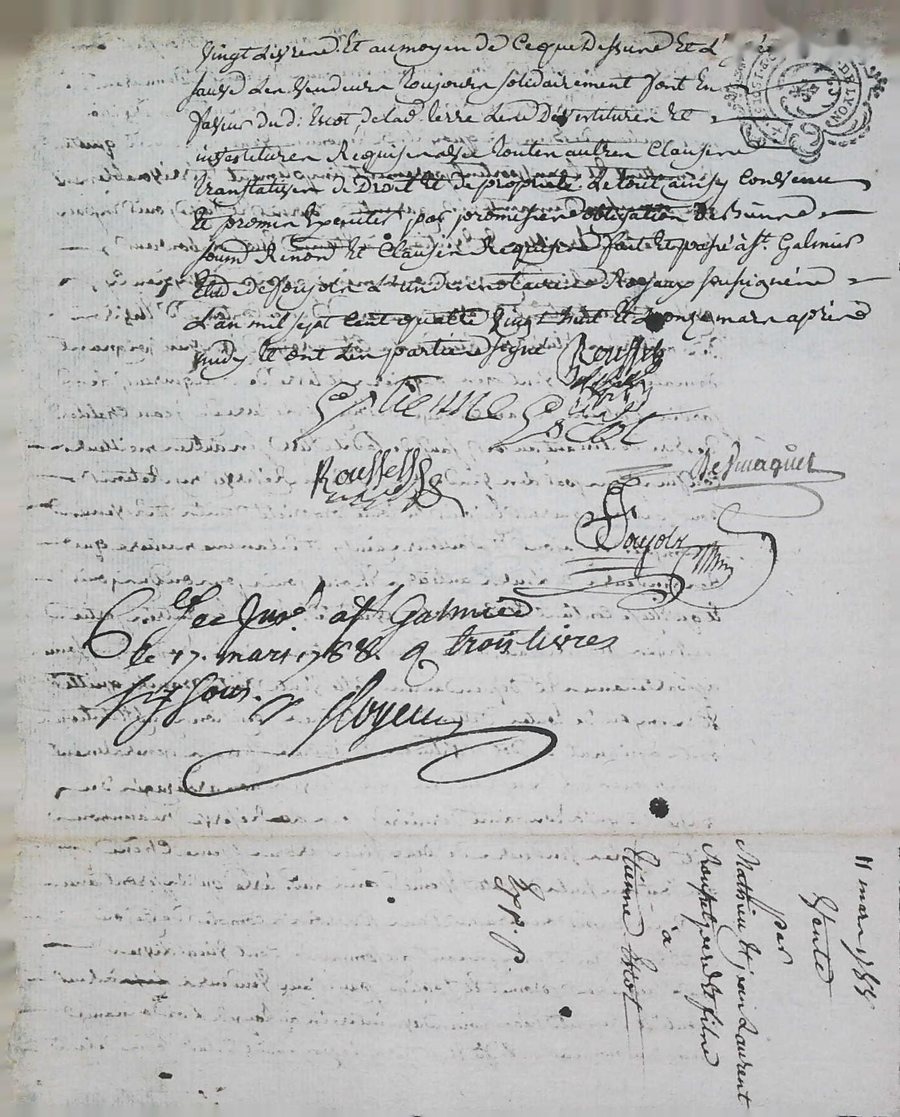 vingt Livres Et au moyen de Ce que Dessus Et
Les vendeurs toujours solidairement font En
faveur du d. Escot, de lad. terre Les Devestitures Et
investitures Requises avec toutes autres Clauses
translatives de Droit Et de propriété. Le tout ainsy Convenu
Et promis Executer par promission obligation De Biens
soumd Renond Et Clauses Requises fait Et passé à St. Galmier
Etude de Poujols L'un des notaires Royaux soussignés
L'an mil sept Cent quatre vingt huit Et Le onze mars après
midy Et ont Les parties signé Rousset
Etienne Escot
Rousset
Desmaquet
Poujols
à St Galmier
le 17. mars 1788. R trois livres
sous.
11 mars 1788
Vente
par
Mathieu Et jean Laurent
Rousset pere Et fils
à
Etienne Escot
Exp. p.
DE LYON